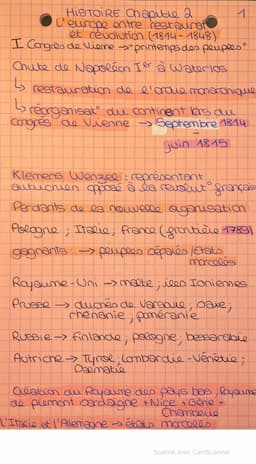 HISTOIRE Chapitre 2
1
L'europe entre restaurat°
et révolution (1814-1848)
I Congrès de Vienne → "printemps des peuples"
Chute de Napoléon Ier à Waterloo
↳ restauration de l'ordre monarchique
↳ réorganisat° du continent lors du
congrès de Vienne → Septembre 1814
juin 1815
Klemens Wenzel : représentant
autrichien opposé à la révolut° française
Perdants de la nouvelle organisation
Pologne ; Italie, France (frontière 1789)
gagnants : → peuples séparés/États
morcelés
Royaume-Uni → malte, iles Ioniennes
Prusse → duchés de Varsovie, Saxe,
rhénanie, poméranie
Russie → Finlande, pologne, bessarabie
Autriche → Tyrol, Lombardie-Vénétie,
Dalmatie
Création du Royaume des pays bas, Royaume
de piemont sardaigne + Nice + Gêne +
Chambérie
L'Italie et l'Allemagne → états morcelés
Scanné avec CamScanner